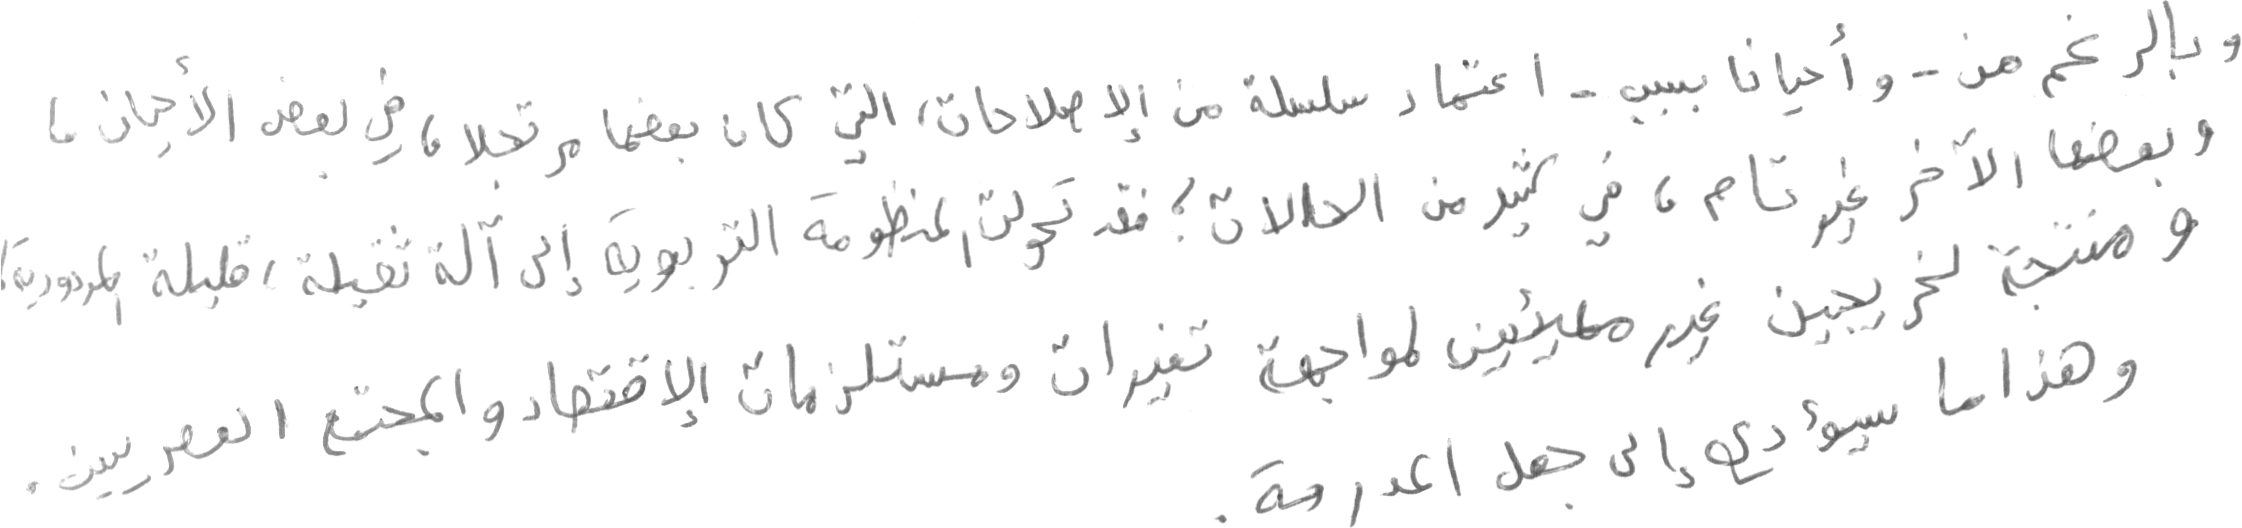 وبالرغم من - وأحيانا بسبب - اعتماد سلسلة من الإصلاحات، التي كان بعضها مرتجلا، في بعض الأحيان،
وبعضها الآخر غير تام، في كثير من الحالات؛ فقد تحولت المنظومة التربوية إلى آلة ثقيلة، قليلة المردودية،
ومنتجة لخريجين غير مهيئين لمواجهة تغيرات ومستلزمات الإقتصاد والمجتمع العصريين.
وهذا ما سيؤدي إلى جعل المدرسة.